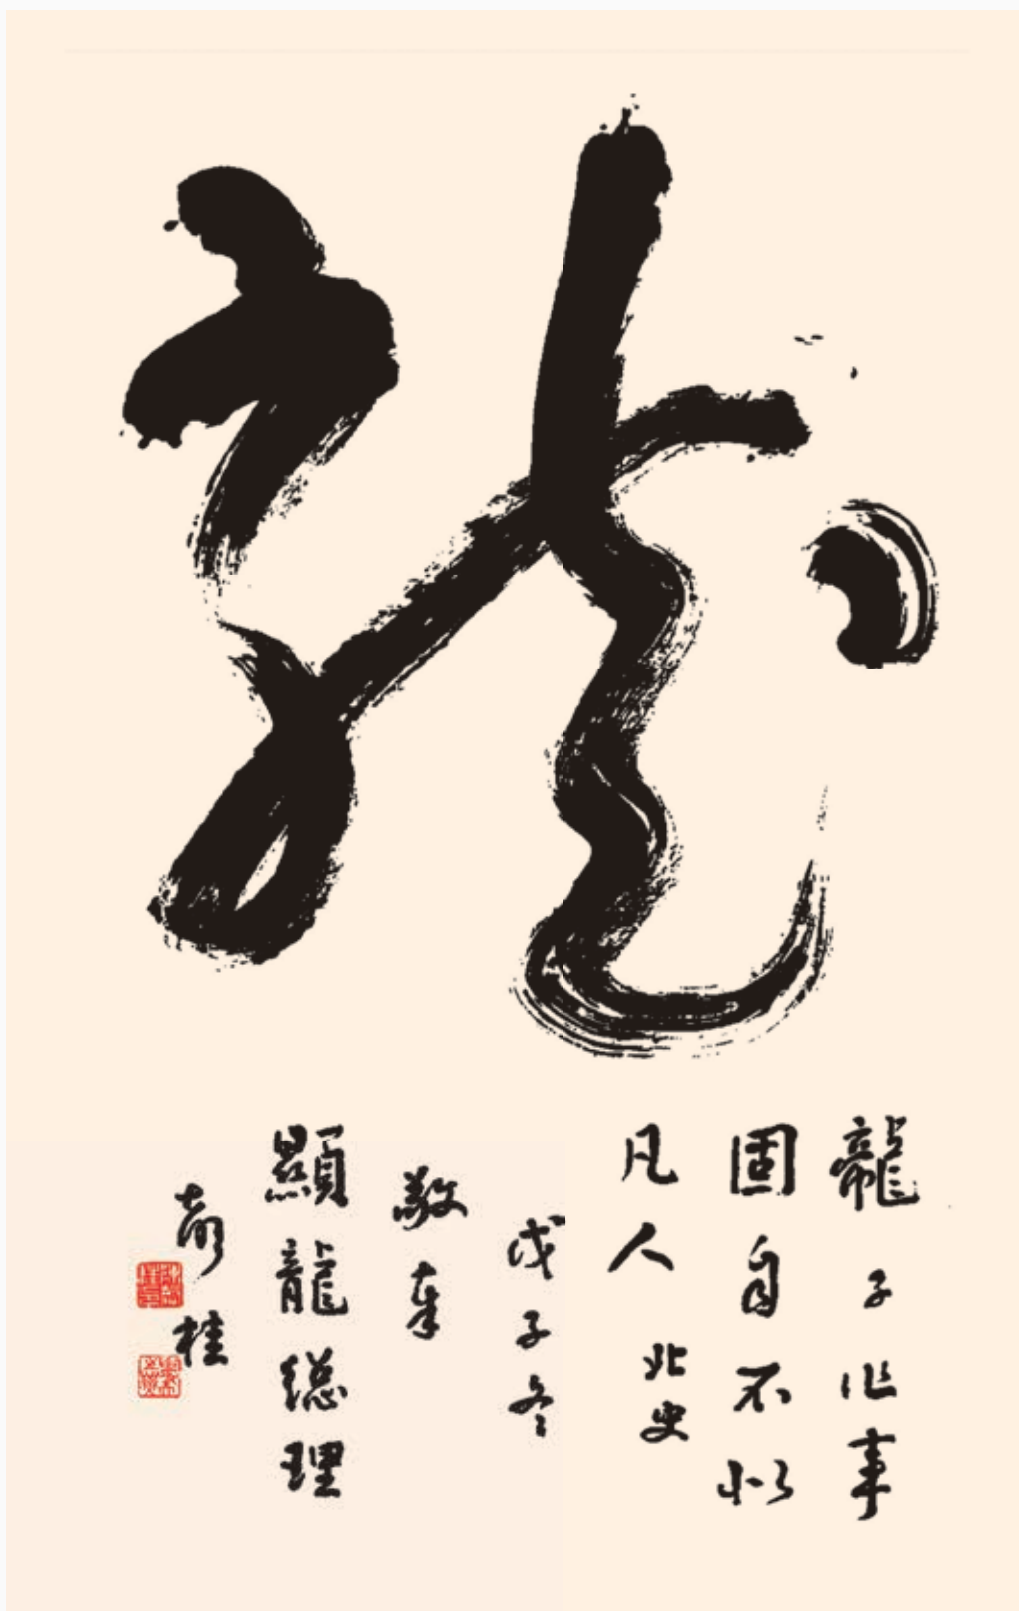 龍
龍子作事
固自不似
凡人 北史
戊子冬
敬奉
顯龍總理
嵩桂